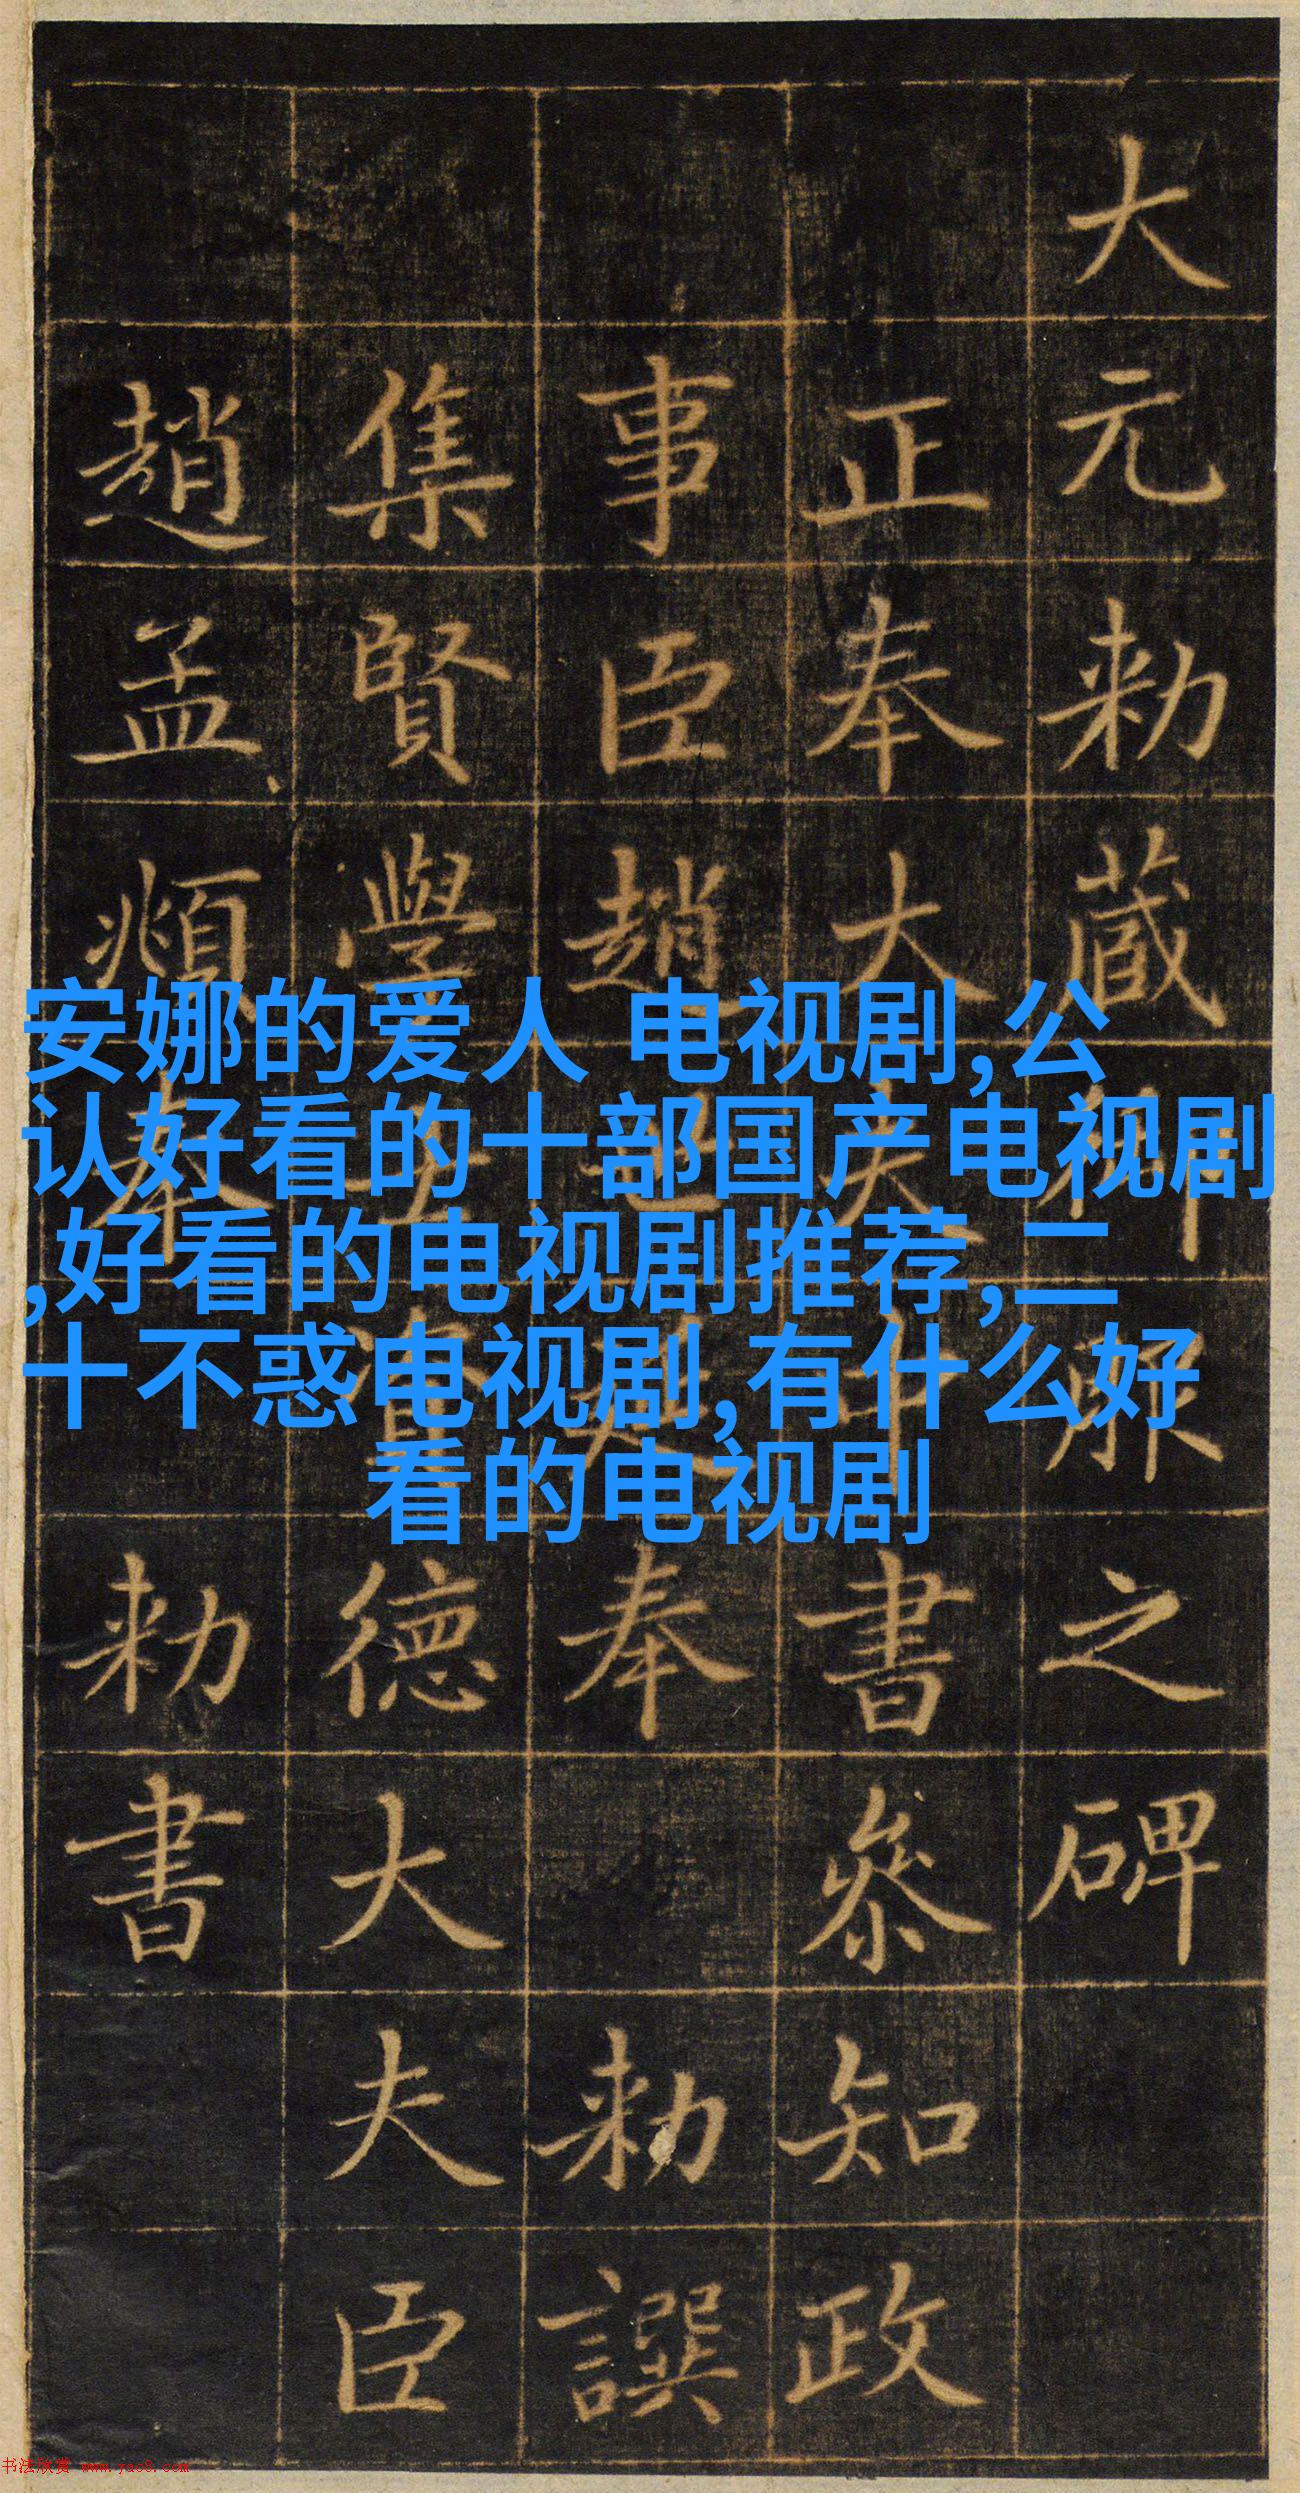 大元勑藏御服之碑
正奉大夫中書參知政
事臣趙世延奉勑譔
集賢學士資德大夫臣
趙孟頫奉勑書
安娜的爱人 电视剧,公
认好看的十部国产电视剧
,好看的电视剧推荐,二
十不惑电视剧,有什么好
看的电视剧
书法欣赏 www.yac8.com